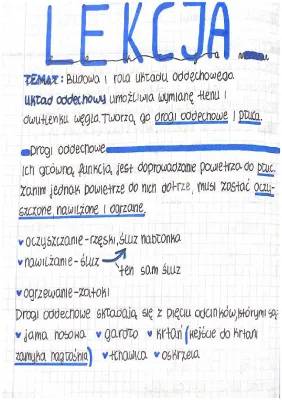 LEKCJA
TEMAT: Budowa i rola układu oddechowego.
układ oddechowy umożliwia wymianę tlenu i
dwutlenku węgla. Tworzą go drogi oddechowe i płuca.
Drogi oddechowe
Ich główną funkcją jest doprowadzanie powietrza do płuc.
Zanim jednak powietrze do nich dotrze, musi zostać oczy-
szczone, nawilżone i ogrzane.
oczyszczanie-rzęski, śluz nabłonka
nawilżanie-śluz
ten sam śluz
ogrzewanie-zatoki
Drogi oddechowe składają się z pięciu odcinków, którymi są:
jama nosowa gardło krtań (wejście do krtani
zamyka nagłośnia) tchawica oskrzela